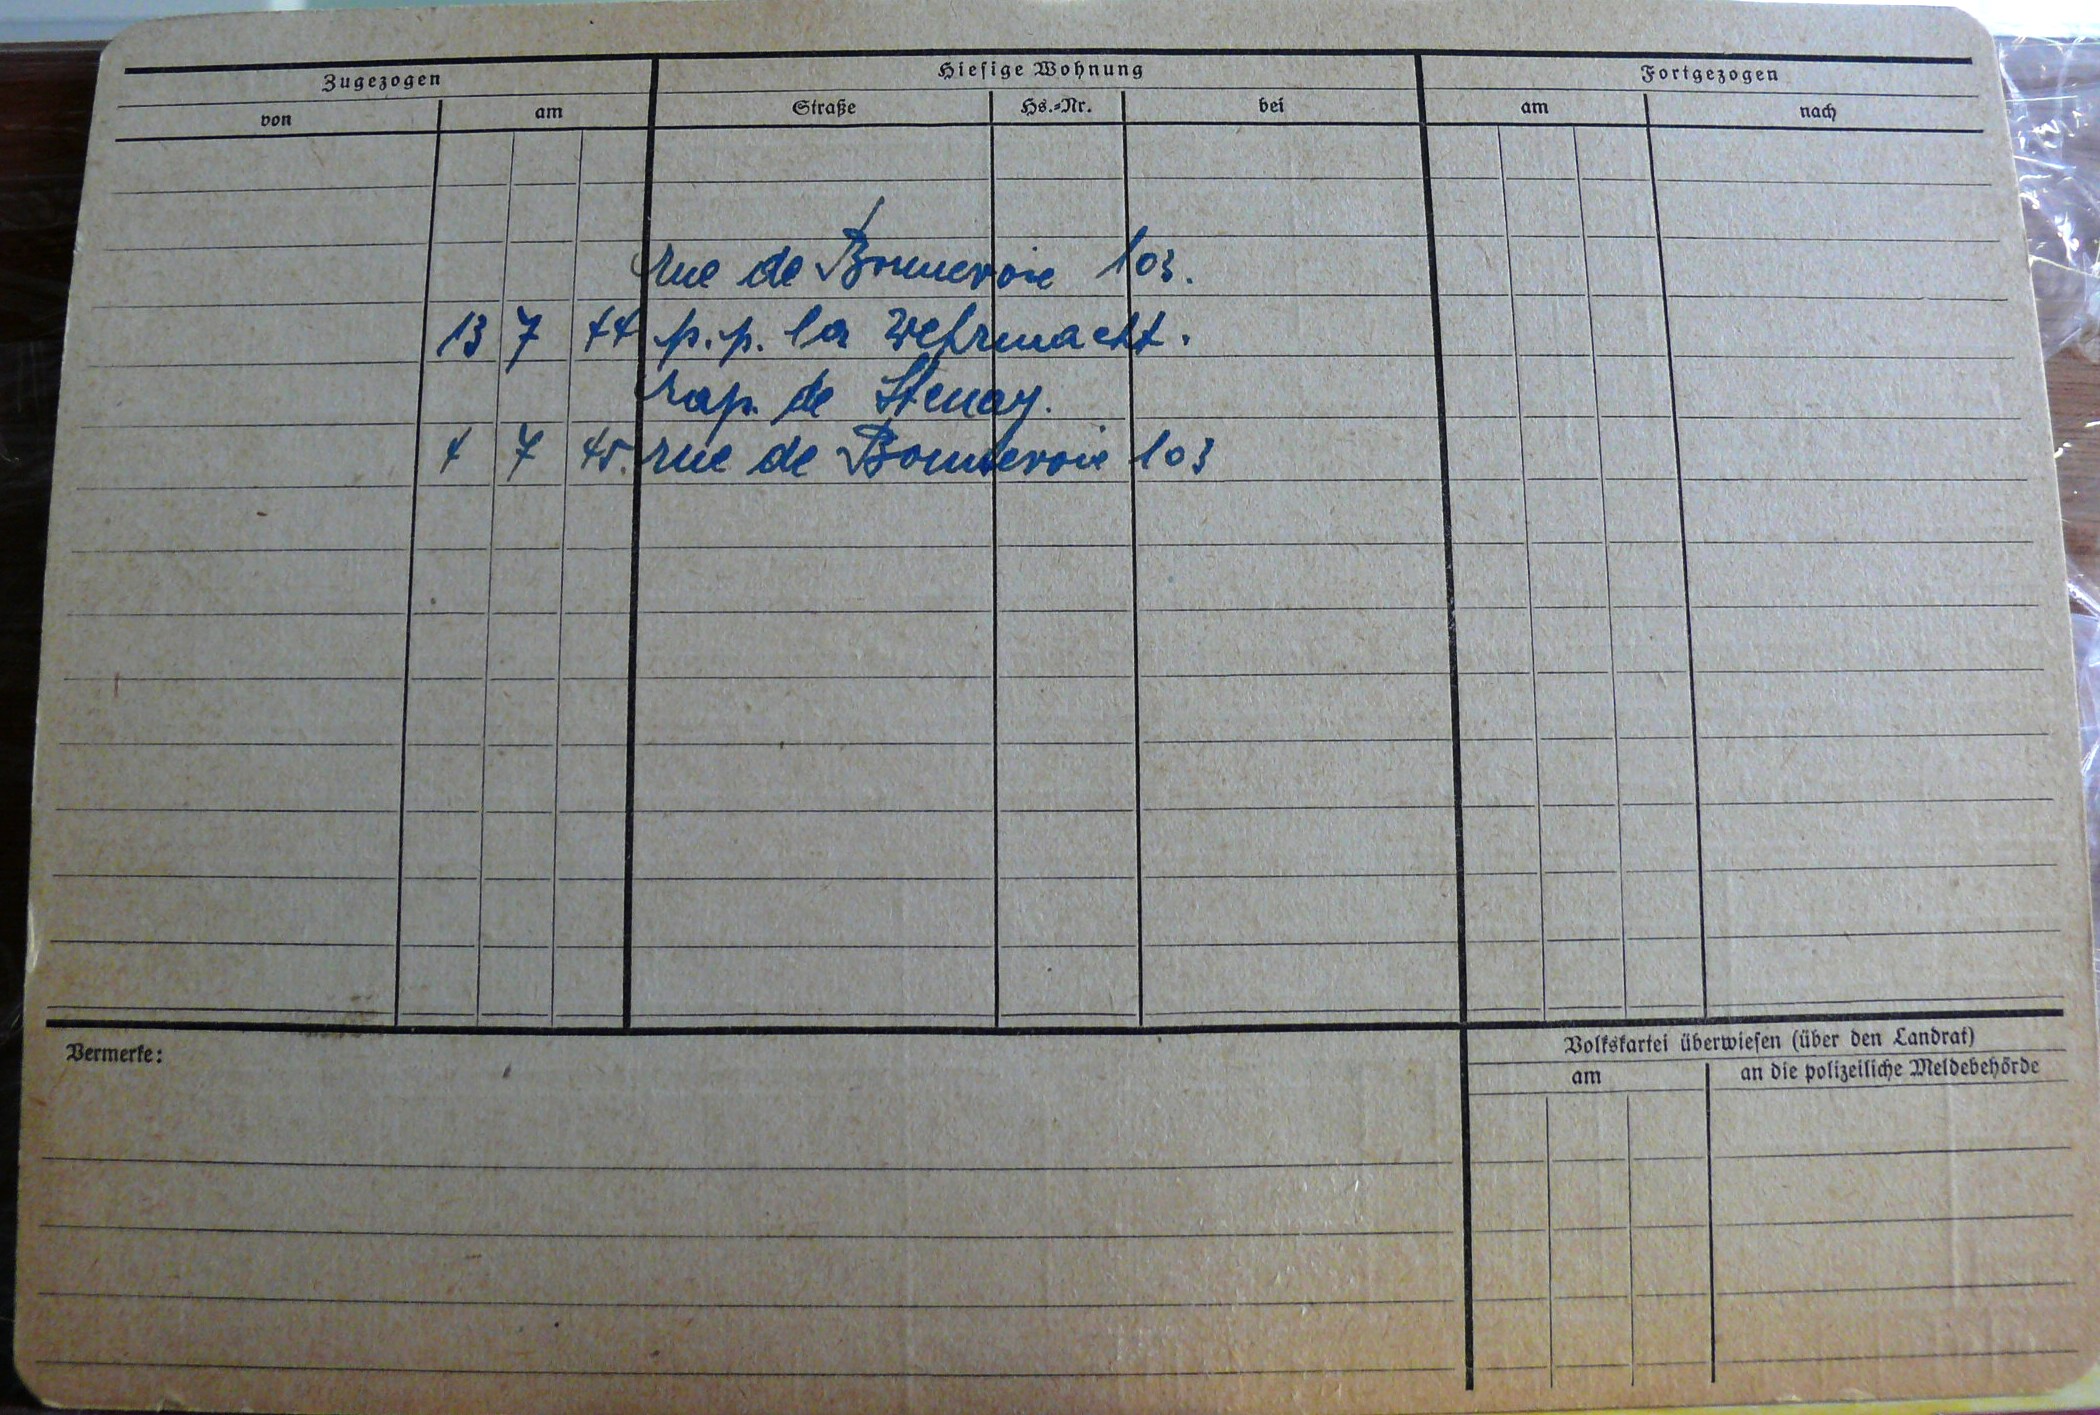 Zugezogen Hiesige Wohnung Fortgezogen
von am Straße Hs.-Nr. bei am nach
rue de Bonnevoie 103.
13 7 44 p.p. la Wehrmacht.
rap. de Stenay.
4 7 45. rue de Bonnevoie 103
Vermerke:
Volkskartei überwiesen (über den Landrat)
am an die polizeiliche Meldebehörde